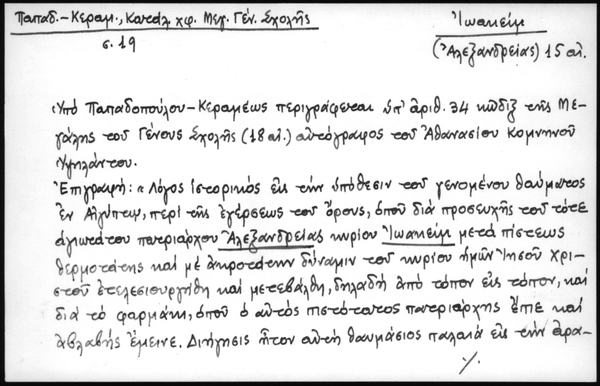 Παπαδ.-Κεραμ., Κατάλ. χφ. Μεγ. Γέν. Σχολῆς
σ. 19
Ἰωακείμ
(Ἀλεξανδρείας) 15 αἰ.
Ὑπὸ Παπαδοπούλου-Κεραμέως περιγράφεται ὑπ' ἀριθ. 34 κῶδιξ τῆς Με-
γάλης τοῦ Γένους Σχολῆς (18 αἰ.) αὐτόγραφος τοῦ Ἀθανασίου Κομνηνοῦ
Ὑψηλάντου.
Ἐπιγραφή: « Λόγος ἱστορικὸς εἰς τὴν ὑπόθεσιν τοῦ γενομένου θαύματος
ἐν Αἰγύπτῳ, περὶ τῆς ἐγέρσεως τοῦ ὄρους, ὁποῦ διὰ προσευχῆς τοῦ τότε
ἁγιωτάτου πατριάρχου Ἀλεξανδρείας κυρίου Ἰωακεὶμ μετὰ πίστεως
θερμοτάτης καὶ μὲ ἀκροτάτην δύναμιν τοῦ κυρίου ἡμῶν Ἰησοῦ Χρι-
στοῦ ἐτελεσιουργήθη καὶ μετεβάλθη, δηλαδὴ ἀπὸ τόπον εἰς τόπον, καὶ
διὰ τὸ φαρμάκι, ὁποῦ ὁ αὐτὸς πιστότατος πατριάρχης ἔπιε καὶ
ἀβλαβὴς ἔμεινε. Διήγησις ἦτον αὐτὴ θαυμάσιος παλαιὰ εἰς τὴν ἀρα-
·/.